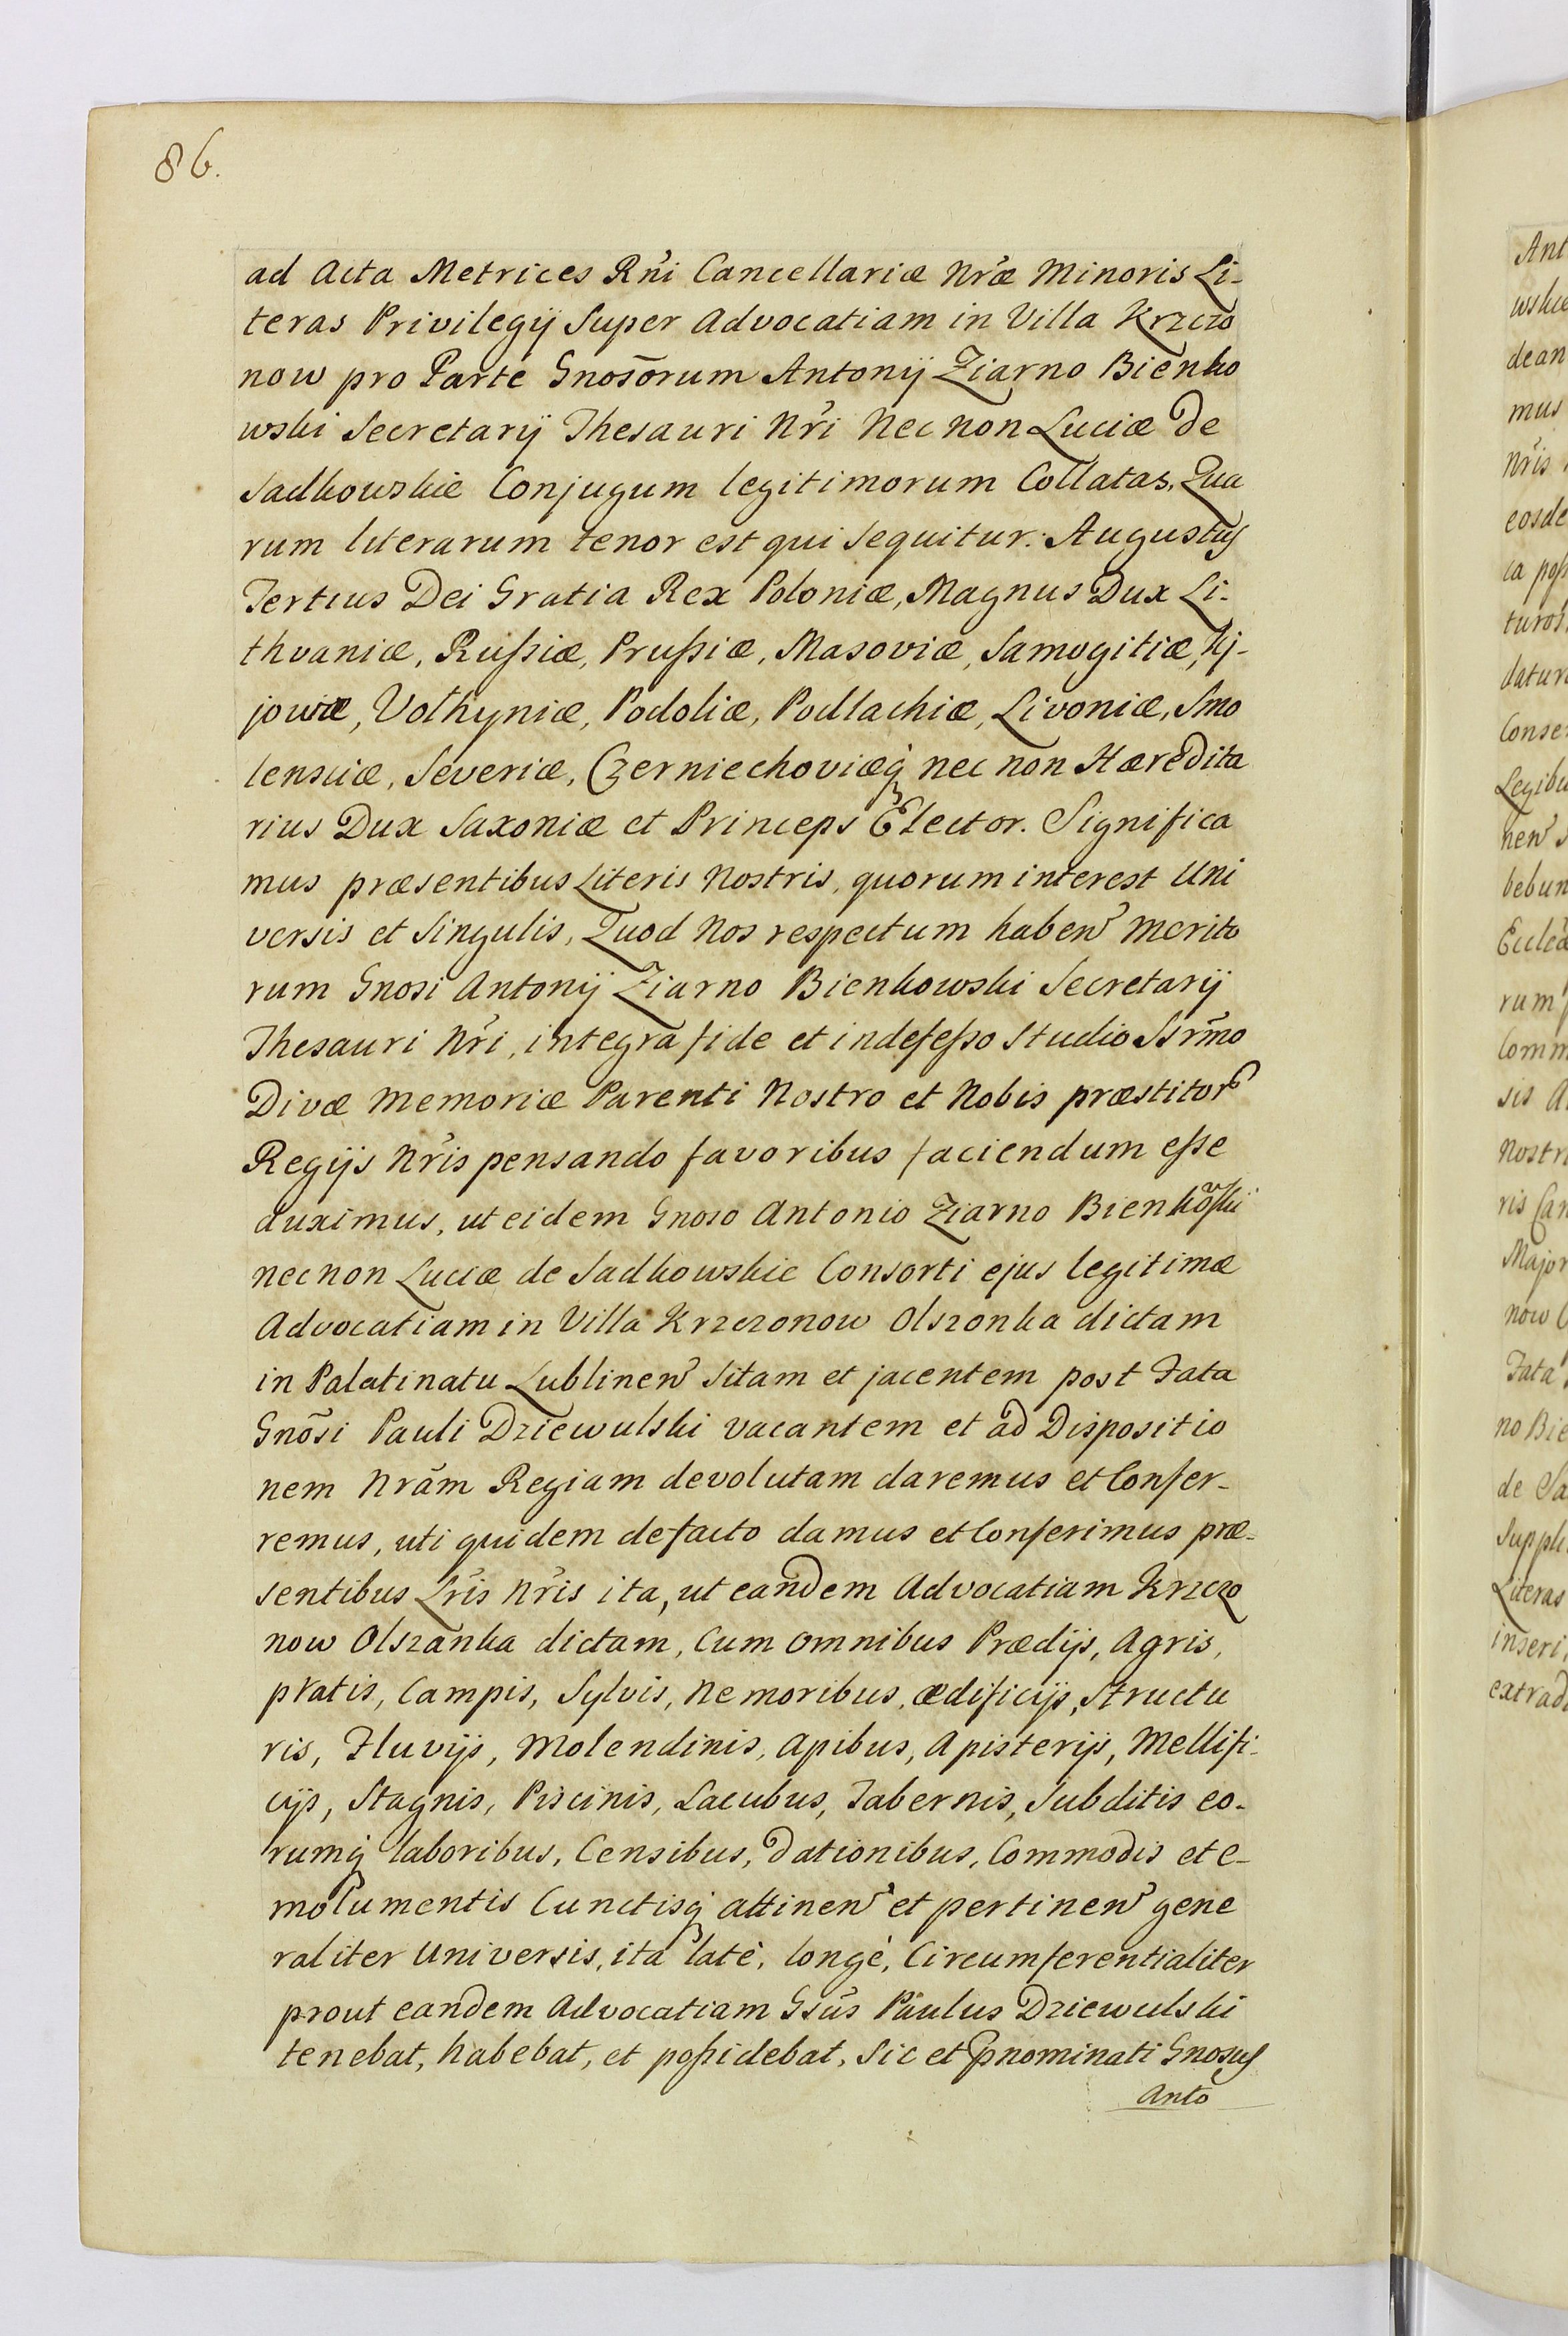 86.
ad Acta Metrices Rñi Cancellariæ Nr̃æ Minoris Li-
teras Privilegij Super Advocatiam in Villa Krzczo
now pro Parte Gnosõrum Antonij Ziarno Bienko
wski Secretarij Thesauri Nr̃i Nec non Luciæ De
Sadkowskie Conjugum legitimorum Collatas, Qua
rum literarum tenor est qui sequitur: Augustus
Tertius Dei Gratia Rex Poloniæ, Magnus Dux Li-
thvaniæ, Rußiæ, Prußiæ, Masoviæ, Samogitiæ, Kij-
joviæ, Volhyniæ, Podoliæ, Podlachiæ, Livoniæ, Smo
lensciæ, Severiæ, Czerniechoviæq̃ nec non Hæredita
rius Dux Saxoniæ et Princeps Elector. Significa
mus præsentibus Literis Nostris, quorum interest Uni
versis et Singulis, Quod Nos respectum haben̄ Merito
rum Gnosi Antonij Ziarno Bienkowski Secretarij
Thesauri Nr̃i, integra fide et indefeßo Studio Ssr̃mo
Divæ Memoriæ Parenti Nostro et Nobis præstitor̃
Regijs Nr̃is pensando favoribus faciendum eße
duximus, ut eidem Gnoso Antonio Ziarno Bienkõski
nec non Luciæ de Sadkowskie Consorti ejus legitimæ
Advocatiam in Villa Krzczonow Olszonka dictam
in Palatinatu Lublinen̄ Sitam et jacentem post Fata
Gnõsi Pauli Dziewulski vacantem et ad Dispositio
nem Nrãm Regiam devolutam daremus et Confer-
remus, uti quidem defacto damus et Conferimus præ-
sentibus Lr̃is Nr̃is ita, ut eandem Advocatiam Krzczo
now Olszanka dictam, Cum omnibus Prædijs, Agris,
pratis, Campis, Sylvis, Nemoribus, ædificijs, Structu
ris, Fluvijs, Molendinis, Apibus, Apisterijs, Mellifi-
cijs, Stagnis, Piscinis, Lacubus, Tabernis, Subditis eo-
rumq̃ laboribus, Censibus, Dationibus, Commodis et e-
molumentis Cunctisq̃ attinen̄ et pertinen̄ gene
raliter Universis, ita latè, longè, Circumferentialiter
prout eandem Advocatiam Gsũs Paulus Dziewulski
tenebat, habebat, et poßidebat, Sic et Pnominati Gnosus
Anto
Ant
wskie
dean
mus
Nr̃is
eosde
ca poß
turos
datur
Conse
Legibu
nen̄ s
bebun
Eccleã
rum
Comm
sis A
Nostr
ris Can
Major
now O
Fata
no Bie
de Sa
Suppli
Literas
inseri,
extrad